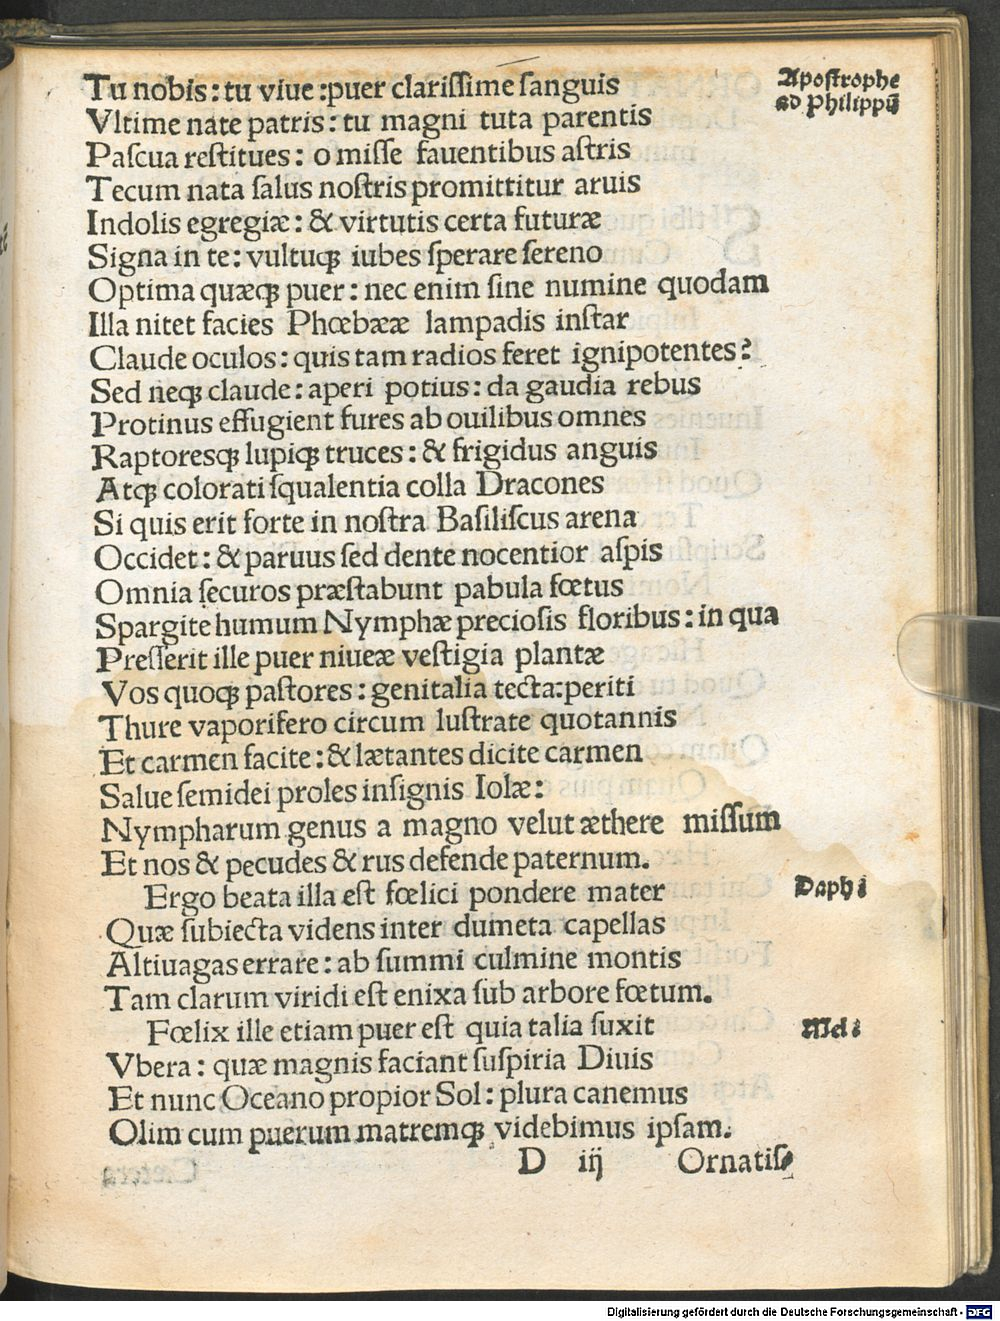 Tu nobis: tu viue :puer clariſſime ſanguis
Apoſtrophe
Vltime nate patris: tu magni tuta parentis
ad Philippū
Paſcua reſtitues: o miſſe fauentibus aſtris
Tecum nata ſalus noſtris promittitur aruis
Indolis egregiæ: & virtutis certa futuræ
Signa in te: vultuqꝫ iubes ſperare ſereno
Optima quæqꝫ puer: nec enim ſine numine quodam
Illa nitet facies Phœbææ lampadis inſtar
Claude oculos: quis tam radios feret ignipotentes?
Sed neqꝫ claude: aperi potius: da gaudia rebus
Protinus effugient fures ab ouilibus omnes
Raptoresqꝫ lupiqꝫ truces: & frigidus anguis
Atqꝫ colorati ſqualentia colla Dracones
Si quis erit forte in noſtra Baſiliſcus arena
Occidet: & paruus ſed dente nocentior aſpis
Omnia ſecuros præſtabunt pabula fœtus
Spargite humum Nymphæ precioſis floribus: in qua
Preſſerit ille puer niueæ veſtigia plantæ
Vos quoqꝫ paſtores: genitalia tecta: periti
Thure vaporifero circum luſtrate quotannis
Et carmen facite: & lætantes dicite carmen
Salue ſemidei proles inſignis Iolæ:
Nympharum genus a magno velut æthere miſſum
Et nos & pecudes & rus defende paternum.
Ergo beata illa eſt fœlici pondere mater
Daph:
Quæ ſubiecta videns inter dumeta capellas
Altiuagas errare: ab ſummi culmine montis
Tam clarum viridi eſt enixa ſub arbore fœtum.
Fœlix ille etiam puer eſt quia talia ſuxit
Mel:
Vbera: quæ magnis faciant ſuſpiria Diuis
Et nunc Oceano propior Sol: plura canemus
Olim cum puerum matremqꝫ videbimus ipſam.
D iij Ornatiſ
Digitalisierung gefördert durch die Deutsche Forschungsgemeinschaft - DFG